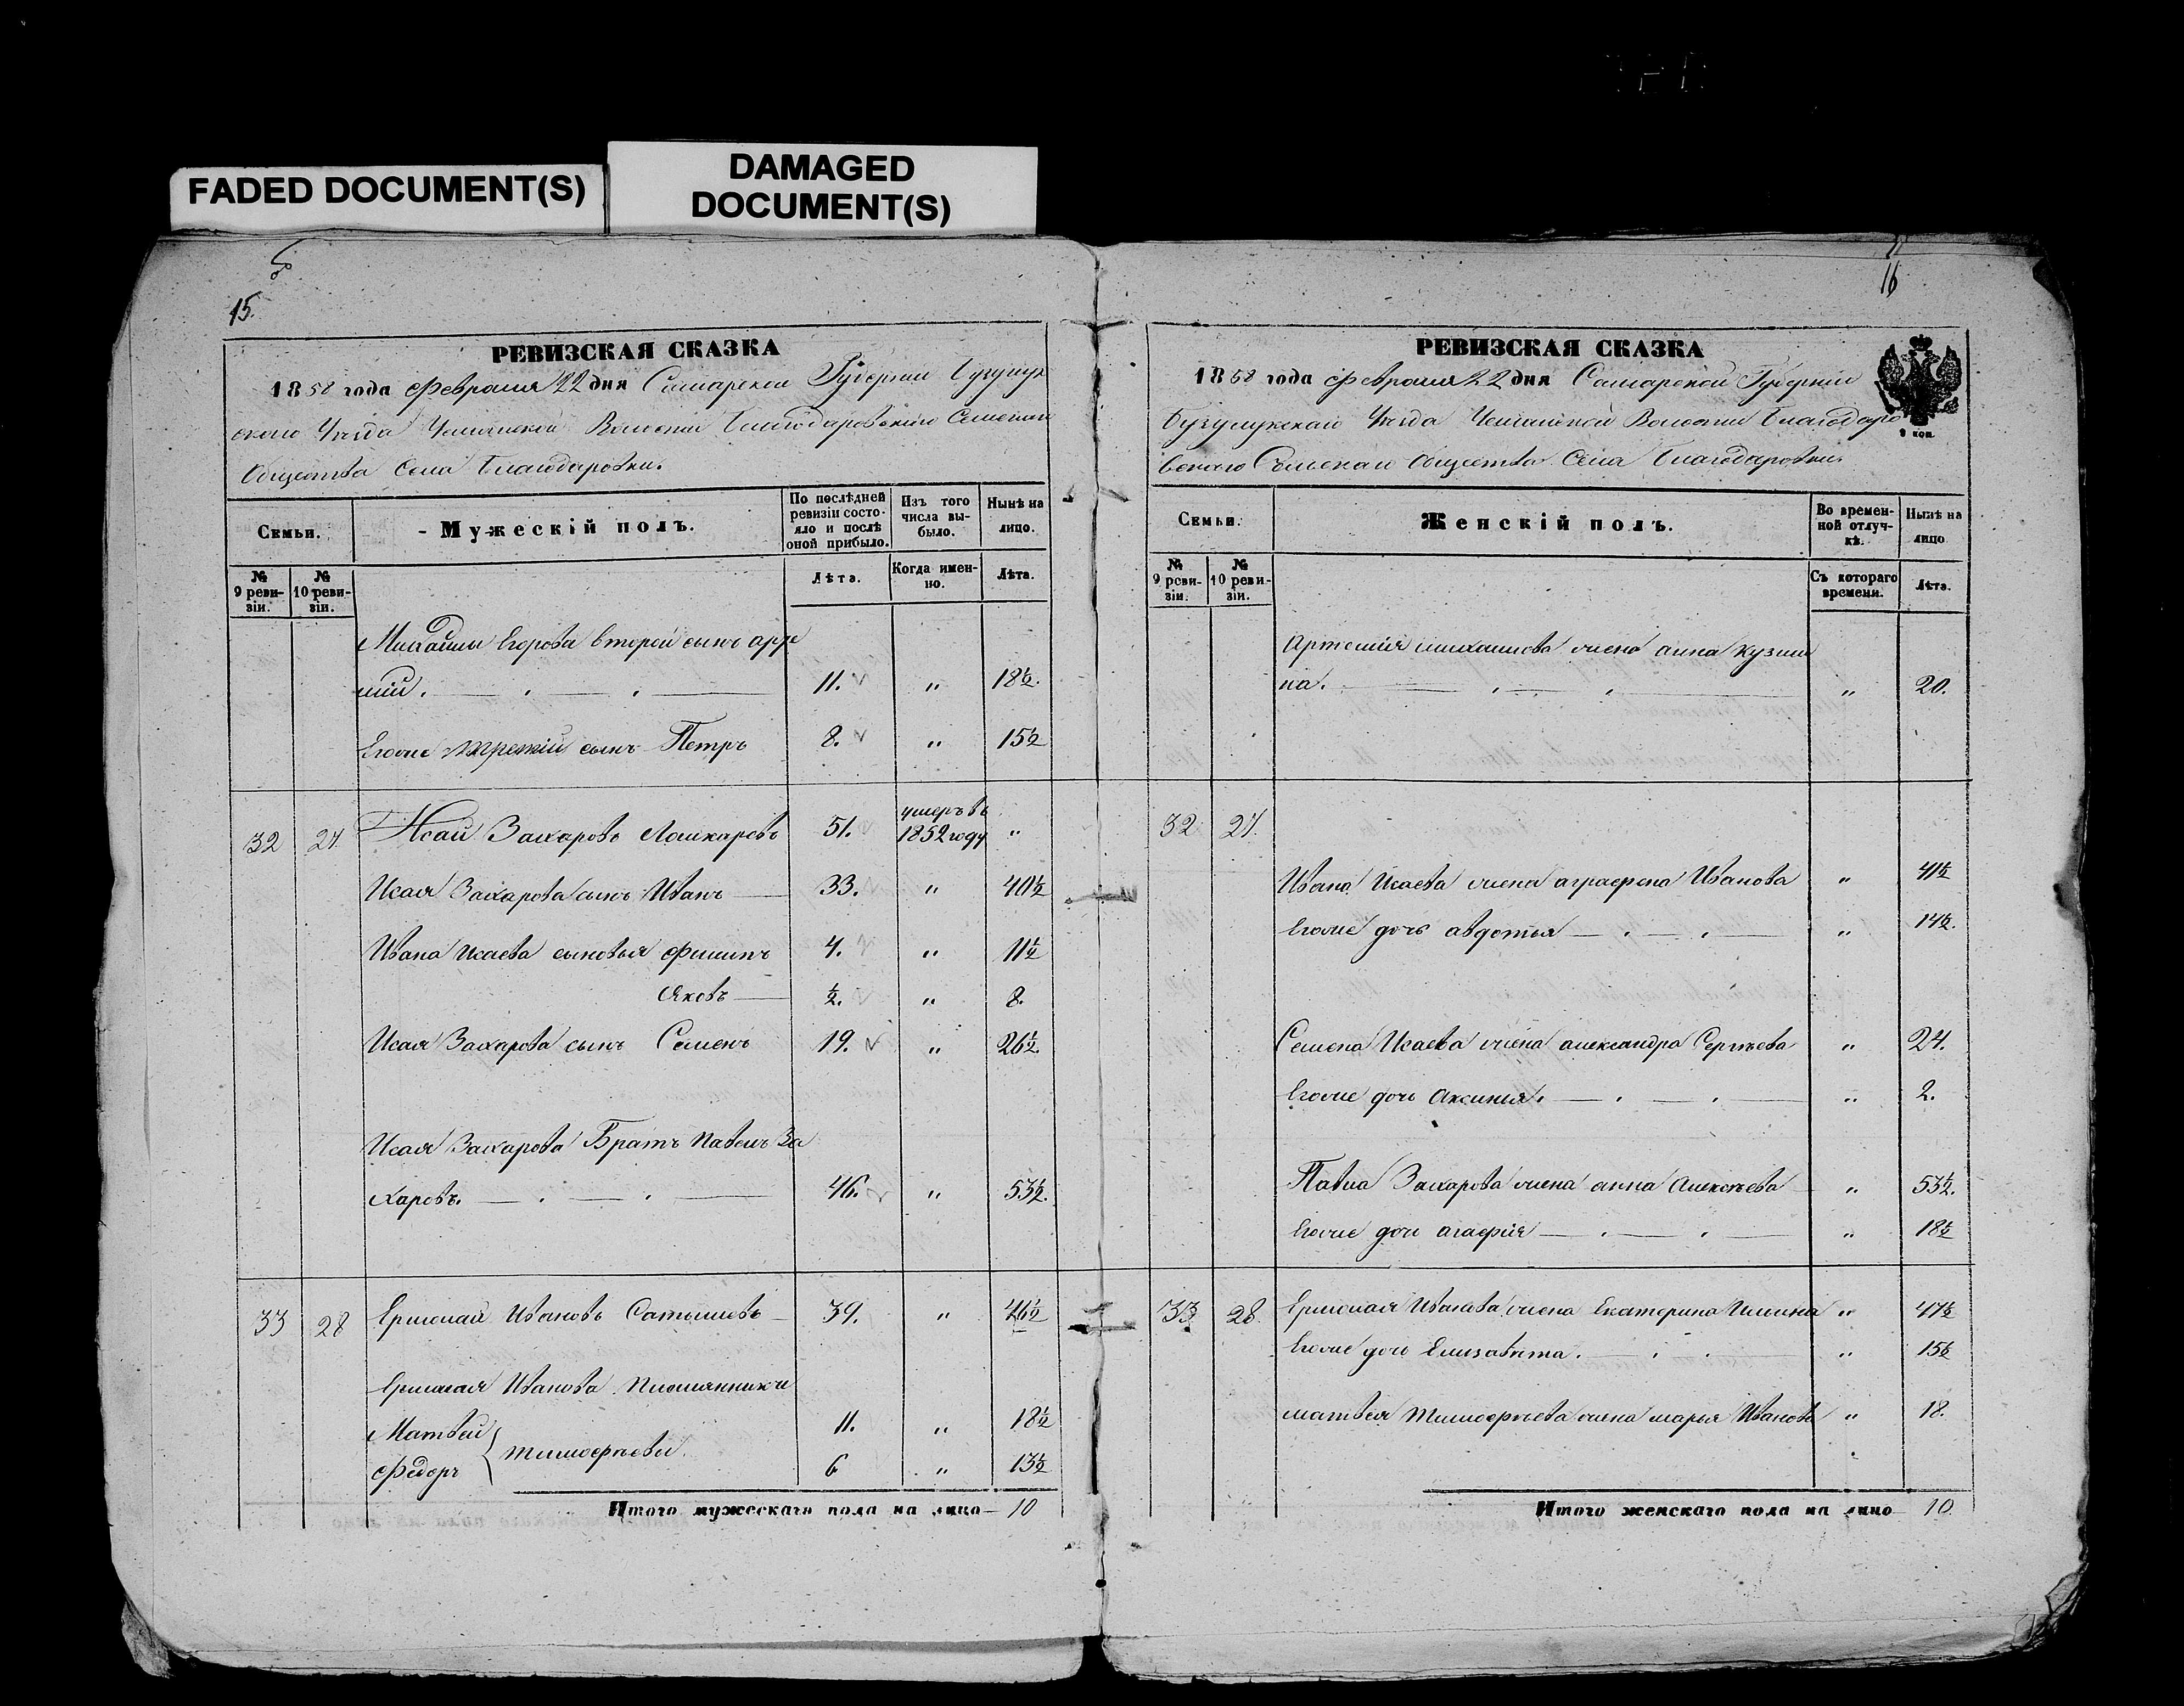 FADED DOCUMENT(S)
DAMAGED
DOCUMENT(S)
15.
РЕВИЗСКАЯ СКАЗКА
1858 года Февраля 22 дня Самарской Губернии Бугурук
скаго Уѣзда Волости Благодаровскаго Сельскаго
Общества Села Благодаровки.
Семьи.
Мужескій полъ.
По послѣдней ревизіи состояло и послѣ оной прибыло.
Изъ того числа выбыло.
Нынѣ на лицо.
№ 9 ревизіи.
№ 10 ревизіи.
Лѣта.
Когда именно.
Лѣта.
Михайлы Егорова второй сынъ Арте
мій. 11. " 18½.
Егоже третій сынъ Петръ 8. " 15½
32 27. Исай Захаровъ Лошкаревъ 51. умеръ въ 1852 году "
Исая Захарова сынъ Иванъ 33. " 40½
Ивана Исаева сыновья Филипъ 4. " 11½
Яковъ ½. " 8.
Исая Захарова сынъ Семенъ 19. " 26½.
Исая Захарова Братъ Павелъ За
харовъ. 46. " 53½.
33 28 Ермолай Ивановъ 39. " 46½
Ермолая Иванова племянники
Матвей 11. " 18½
Тимофеевы
Федоръ 6 " 13½
Итого мужескаго пола на лицо 10
16
РЕВИЗСКАЯ СКАЗКА
1858 года Февраля 22 дня Самарской Губерніи
Бугурусскаго Уѣзда Волости Благодаро
вскаго Сельскаго Общества Села Благодаровки.
9 коп.
Семьи.
Женскій полъ.
Во временной отлучкѣ.
Нынѣ на лицо
№ 9 ревизіи.
№ 10 ревизіи.
Съ котораго времени.
Лѣта.
Артемія Михайлова жена Анна Кузми
на. " 20.
32 27.
Ивана Исаева жена Аграфена Иванова " 41½
Егоже дочь Авдотья " 14½.
Семена Исаева жена Александра Сергѣева " 24.
Егоже дочь Аксинья. " 2.
Павла Захарова жена Анна Алексѣева " 53½.
Егоже дочь Агафія " 18½
33. 28. Ермолая Иванова жена Екатерина Ильина " 47½
Егоже дочь Елизавѣта. " 15½
Матвея Тимофеева жена Марья Иванова " 18.
Итого женскаго пола на лицо 10.